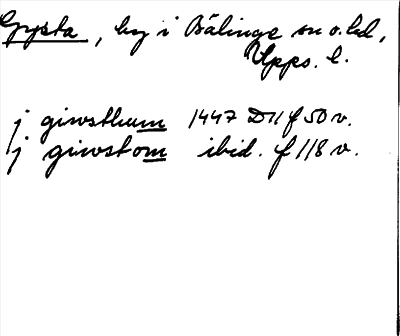 Gysta, by i Bälinge sn o. hd,
Upps. l.
j giwsthum 1447 D11 f 50 v.
j giwstom ibid. f 118 v.